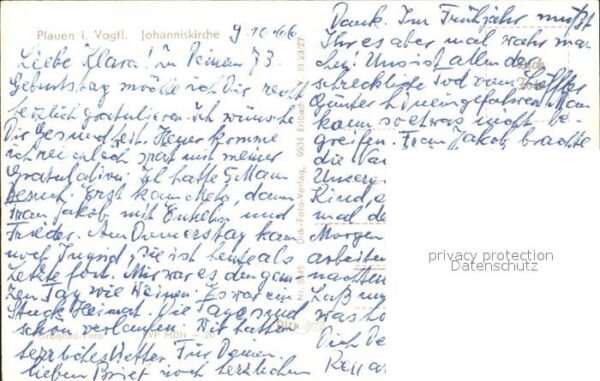 Plauen i. Vogtl. Johanniskirche 9.10.66
Liebe Klara! Zu Deinem 73.
Geburtstag möchte ich Dir recht
herzlich gratulieren. Ich wünsche
Dir Gesundheit. Heuer komme
ich reichlich spät mit meiner
Gratulation. Ich hatte 5 Mann
Besuch. Erst kam, dann
Frau Jakob mit Enkelin und
Frieder. Am Donnerstag kam
noch Ingrid, sie ist heute als
Letzte fort. Mir war es den gan-
zen Tag wie Weinen. Es war ein
Stück Heimat. Die Tage sind
schön verlaufen. Wir hatten
herrliches Wetter. Für Deinen
lieben Brief noch herzlichen
Dank. Im Frühjahr müßt
Ihr es aber mal wahr ma-
chen! Uns ist allen der
schreckliche Tod vom
Günter Man
kann so etwas nicht be-
greifen. Frau Jakob brachte
die
Kind,
mal de
Morgen
arbeiten
nachten
Laß
was
Dich De
Dick-Foto-Verlag, 9934 Erlbach III 23/27
Nr. 8 45
Großbild-Foto EVP MDN -,20
privacy protection
Datenschutz